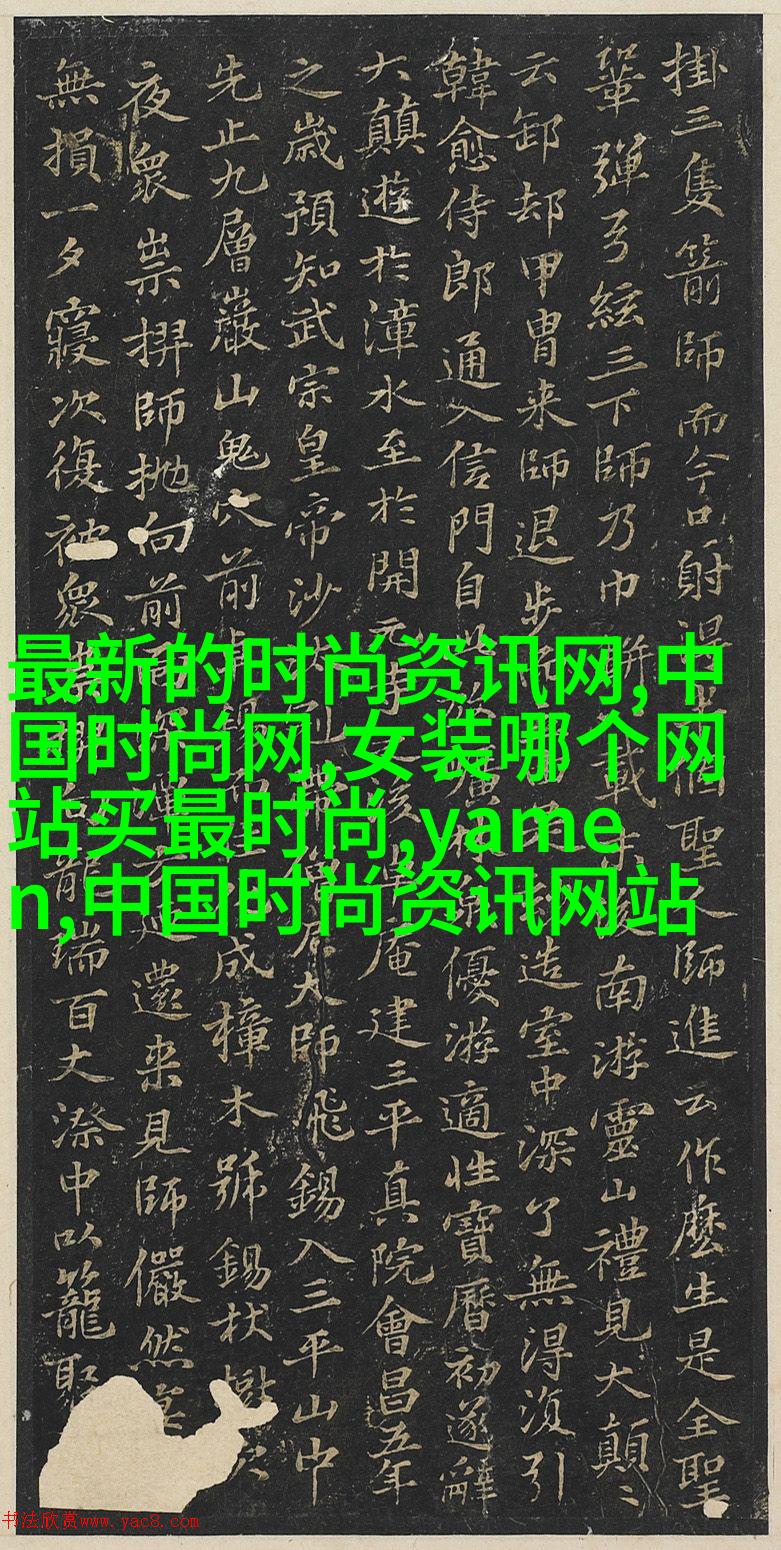 掛三隻箭師而今只射個聖師進云作麼生是全聖
鞏彈弓絃三下師乃巾載南游靈山禮見大顛〻
云卸却甲胄来師退步造室中深了無得湏引
韓愈侍郎通入信門自以優游適性寶曆初遂辭
大顛遊於漳水至於開元庵建三平真院會昌五年
之歲預知武宗皇帝沙大師飛錫入三平山中
先止九層巖山鬼穴前成樟木號錫杖
夜衆祟師抛向前還来見師儼然
無損一夕寢次復被衆龍瑞百丈漈中以籠聚
最新的时尚资讯网,中
国时尚网,女装哪个网
站买最时尚,yame
n,中国时尚资讯网站
书法欣赏www.yac8.com